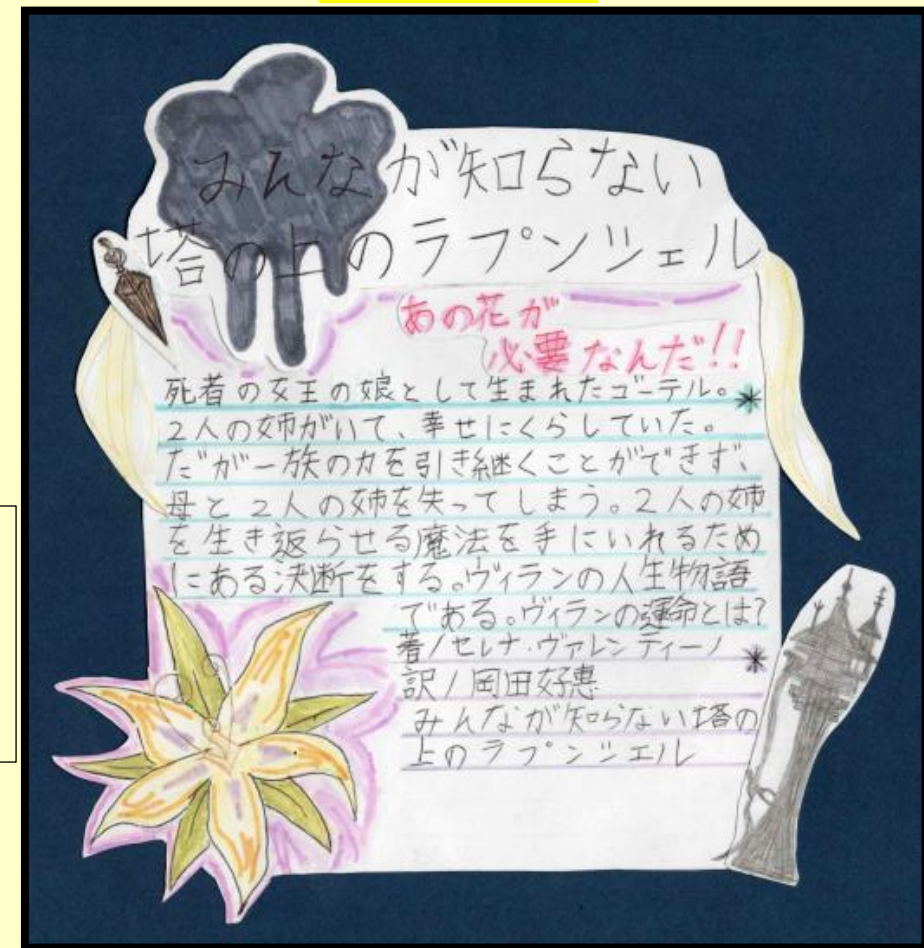 みんなが知らない
塔の上のラプンツェル
あの花が
必要なんだ!!
死者の女王の娘として生まれたゴーテル。
2人の姉がいて、幸せにくらしていた。
だが一族の力を引き継ぐことができず、
母と2人の姉を失ってしまう。2人の姉
を生き返らせる魔法を手にいれるため
にある決断をする。ヴィランの人生物語
である。ヴィランの運命とは?
著/セレナ・ヴァレンティーノ
訳/岡田好惠
みんなが知らない塔の
上のラプンツェル